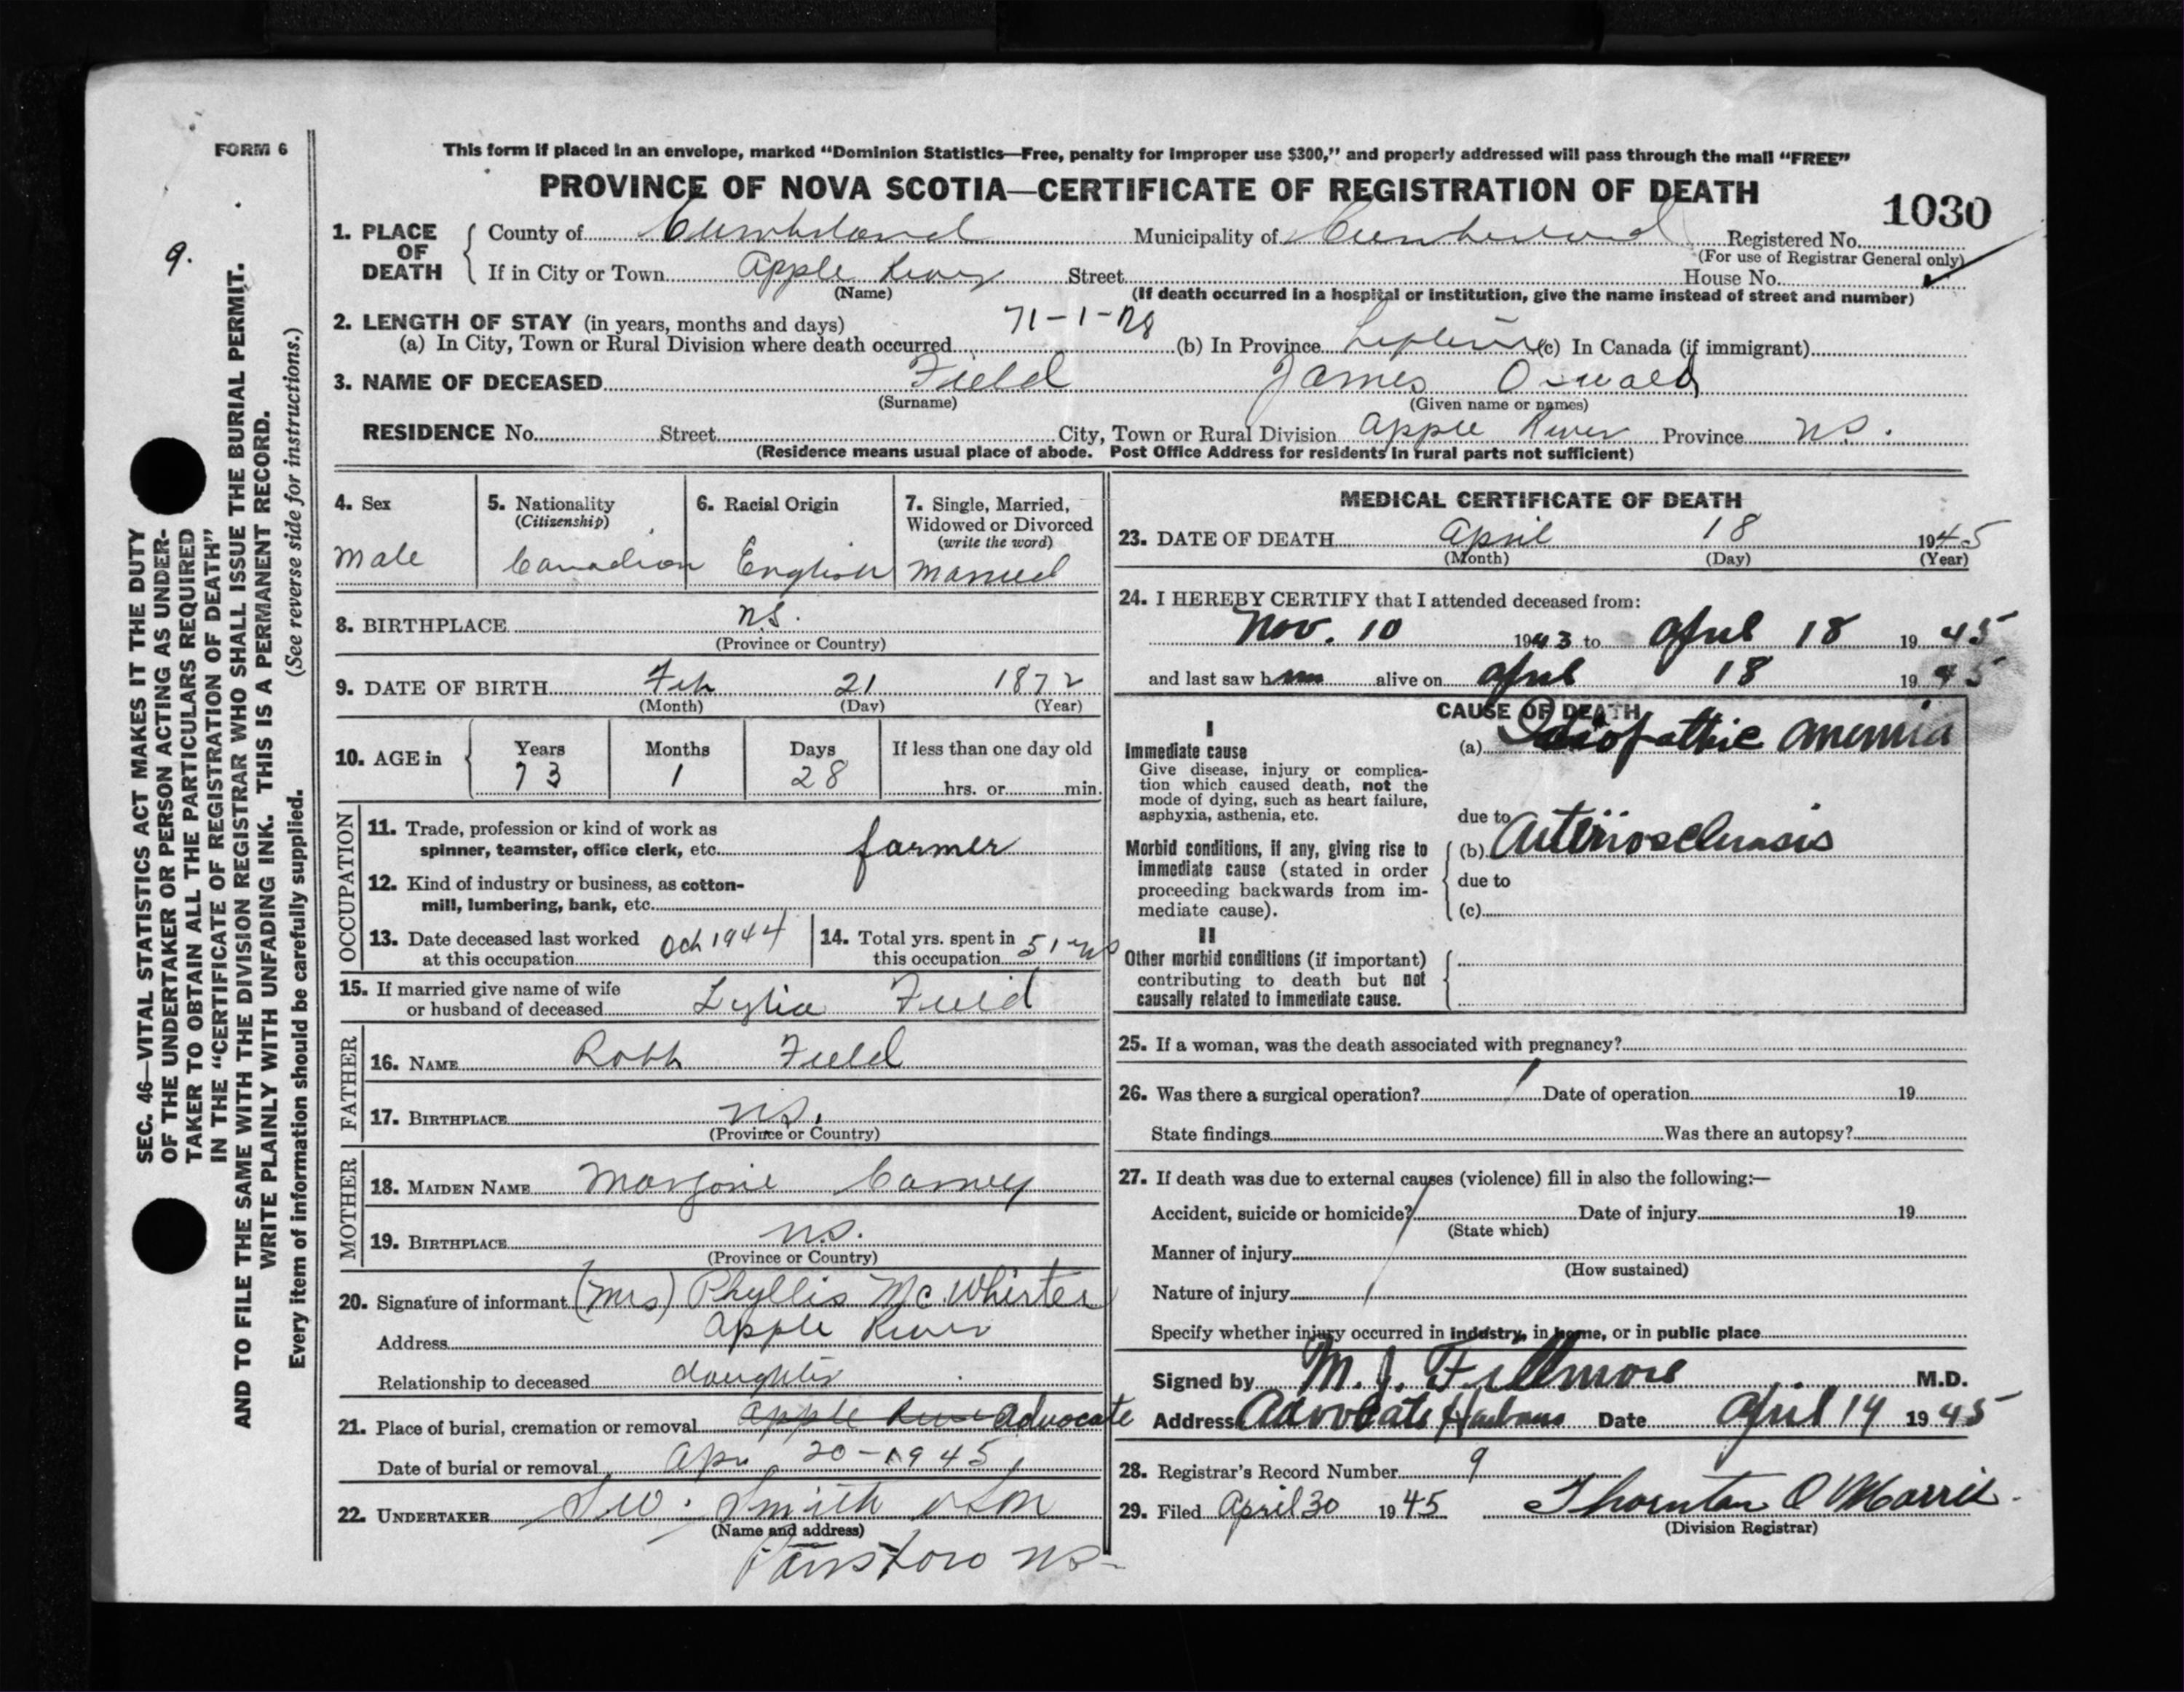 FORM 6
This form if placed in an envelope, marked “Dominion Statistics—Free, penalty for improper use $300,” and properly addressed will pass through the mail “FREE”
PROVINCE OF NOVA SCOTIA—CERTIFICATE OF REGISTRATION OF DEATH
1030
9.
SEC. 46—VITAL STATISTICS ACT MAKES IT THE DUTY
OF THE UNDERTAKER OR PERSON ACTING AS UNDER-
TAKER TO OBTAIN ALL THE PARTICULARS REQUIRED
IN THE “CERTIFICATE OF REGISTRATION OF DEATH”
AND TO FILE THE SAME WITH THE DIVISION REGISTRAR WHO SHALL ISSUE THE BURIAL PERMIT.
WRITE PLAINLY WITH UNFADING INK. THIS IS A PERMANENT RECORD.
Every item of information should be carefully supplied. (See reverse side for instructions.)
1. PLACE OF DEATH County of Cumberland Municipality of Cumberland Registered No.
(For use of Registrar General only)
If in City or Town Apple River Street House No.
(Name) (If death occurred in a hospital or institution, give the name instead of street and number)
2. LENGTH OF STAY (in years, months and days)
(a) In City, Town or Rural Division where death occurred 71-1-28 (b) In Province Lifetime (c) In Canada (if immigrant)
3. NAME OF DECEASED Field James Oswald
(Surname) (Given name or names)
RESIDENCE No. Street City, Town or Rural Division Apple River Province N.S.
(Residence means usual place of abode. Post Office Address for residents in rural parts not sufficient)
4. Sex
Male
5. Nationality
(Citizenship)
Canadian
6. Racial Origin
English
7. Single, Married,
Widowed or Divorced
(write the word)
Married
8. BIRTHPLACE N.S.
(Province or Country)
9. DATE OF BIRTH Feb 21 1872
(Month) (Day) (Year)
10. AGE in Years Months Days If less than one day old
73 1 28 hrs. or min.
OCCUPATION
11. Trade, profession or kind of work as
spinner, teamster, office clerk, etc. farmer
12. Kind of industry or business, as cotton-
mill, lumbering, bank, etc.
13. Date deceased last worked
at this occupation Oct 1944
14. Total yrs. spent in
this occupation 51 yrs
15. If married give name of wife
or husband of deceased Field
FATHER
16. NAME Robt Field
17. BIRTHPLACE N.S.
(Province or Country)
MOTHER
18. MAIDEN NAME Marjorie
19. BIRTHPLACE N.S.
(Province or Country)
20. Signature of informant (Mrs) Phyllis McWhirter
Address Apple River
Relationship to deceased daughter
21. Place of burial, cremation or removal Apple River Advocate
Date of burial or removal Apr 20-1945
22. UNDERTAKER Smith & Son
(Name and address)
Parrsboro NS
MEDICAL CERTIFICATE OF DEATH
23. DATE OF DEATH April 18 1945
(Month) (Day) (Year)
24. I HEREBY CERTIFY that I attended deceased from:
Nov. 10 1943 to April 18 1945
and last saw him alive on April 18 1945
CAUSE OF DEATH
I
Immediate cause
Give disease, injury or complica-
tion which caused death, not the
mode of dying, such as heart failure,
asphyxia, asthenia, etc.
(a) Idiopathic Anemia
due to
Morbid conditions, if any, giving rise to
immediate cause (stated in order
proceeding backwards from im-
mediate cause).
(b) Arteriosclerosis
due to
(c)
II
Other morbid conditions (if important)
contributing to death but not
causally related to immediate cause.
25. If a woman, was the death associated with pregnancy?
26. Was there a surgical operation? Date of operation 19
State findings Was there an autopsy?
27. If death was due to external causes (violence) fill in also the following:—
Accident, suicide or homicide? Date of injury 19
(State which)
Manner of injury
(How sustained)
Nature of injury
Specify whether injury occurred in industry, in home, or in public place
Signed by M. J. Fillmore M.D.
Address Advocate Harbour Date April 19 1945
28. Registrar's Record Number 9
29. Filed April 30 1945 Thornton O Morris
(Division Registrar)